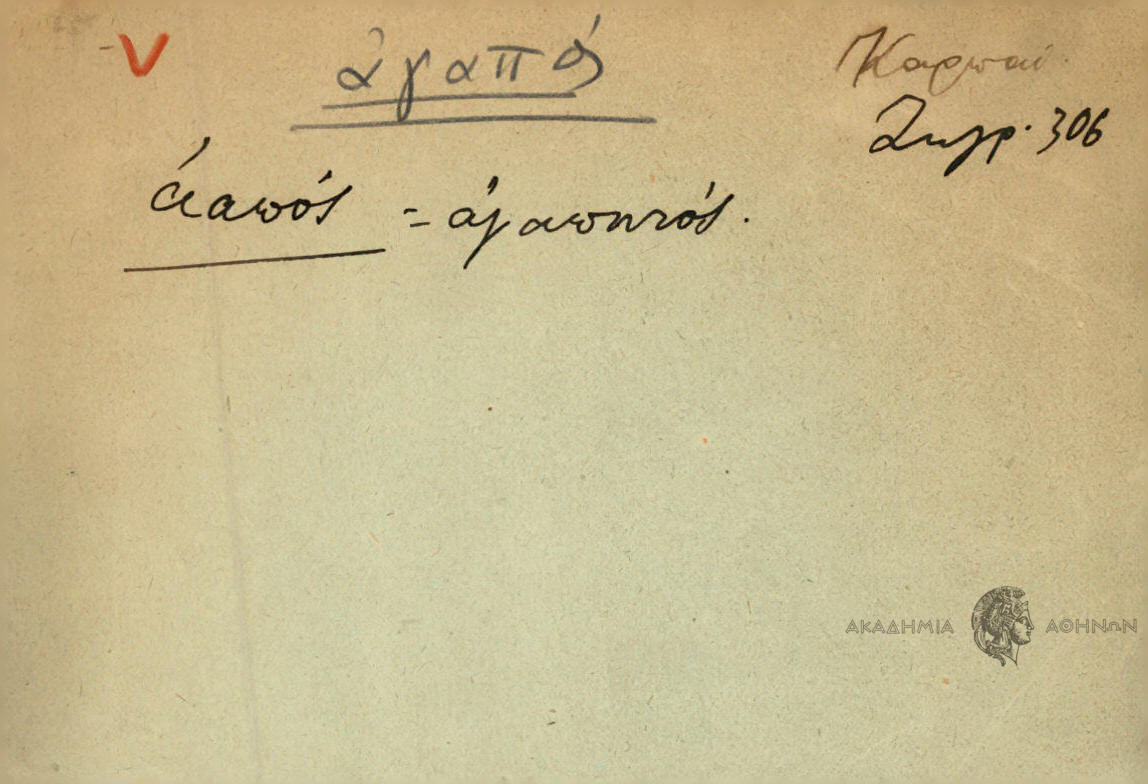 V
ἀγαπό
Καρπαθ.
Ζωγρ. 306
ἀαπός = ἀγαπητός.
ΑΚΑΔΗΜΙΑ ΑΘΗΝΩΝ